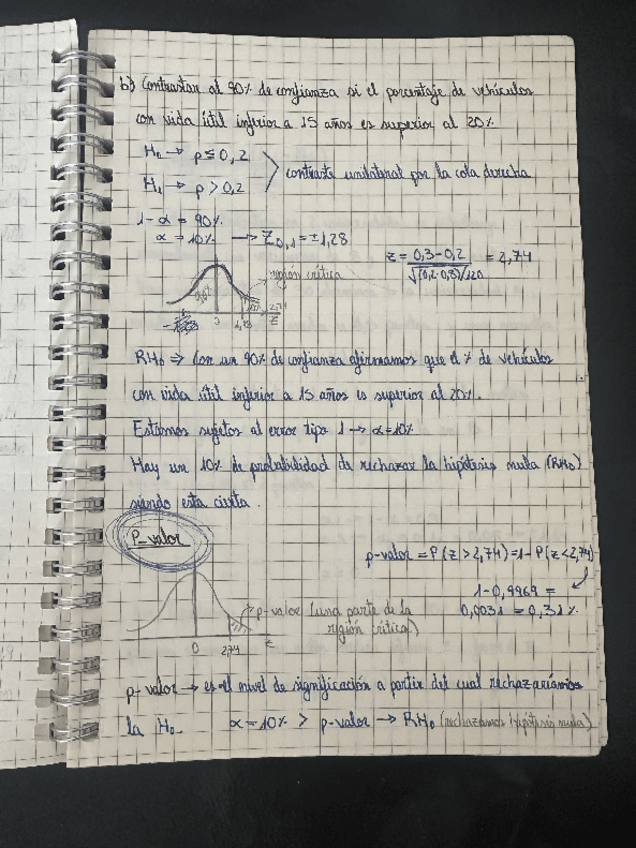 b) Contrastar al 90% de confianza si el porcentaje de vehículos
con vida útil inferior a 15 años es superior al 20%
H₀ → p ≤ 0,2
H₁ → p > 0,2
contraste unilateral por la cola derecha
1-α = 90%
α = 10% → Z₀,₁ = ±1,28
z = 0,3-0,2 / √(0,2·0,8)/120 = 2,74
región crítica
0 1,28 2,74 z
RH₀ ⇒ Con un 90% de confianza afirmamos que el % de vehículos
con vida útil inferior a 15 años es superior al 20%.
Estamos sujetos al error tipo 1 → α=10%
Hay un 10% de probabilidad de rechazar la hipótesis nula (RH₀)
siendo esta cierta.
P-valor
p-valor = P(z > 2,74) = 1 - P(z < 2,74)
1-0,9969 =
0,0031 = 0,31%
p-valor (una parte de la
región crítica)
0 2,74 z
p-valor → es el nivel de significación a partir del cual rechazaríamos
la H₀. α = 10% > p-valor → RH₀ (rechazamos hipótesis nula)